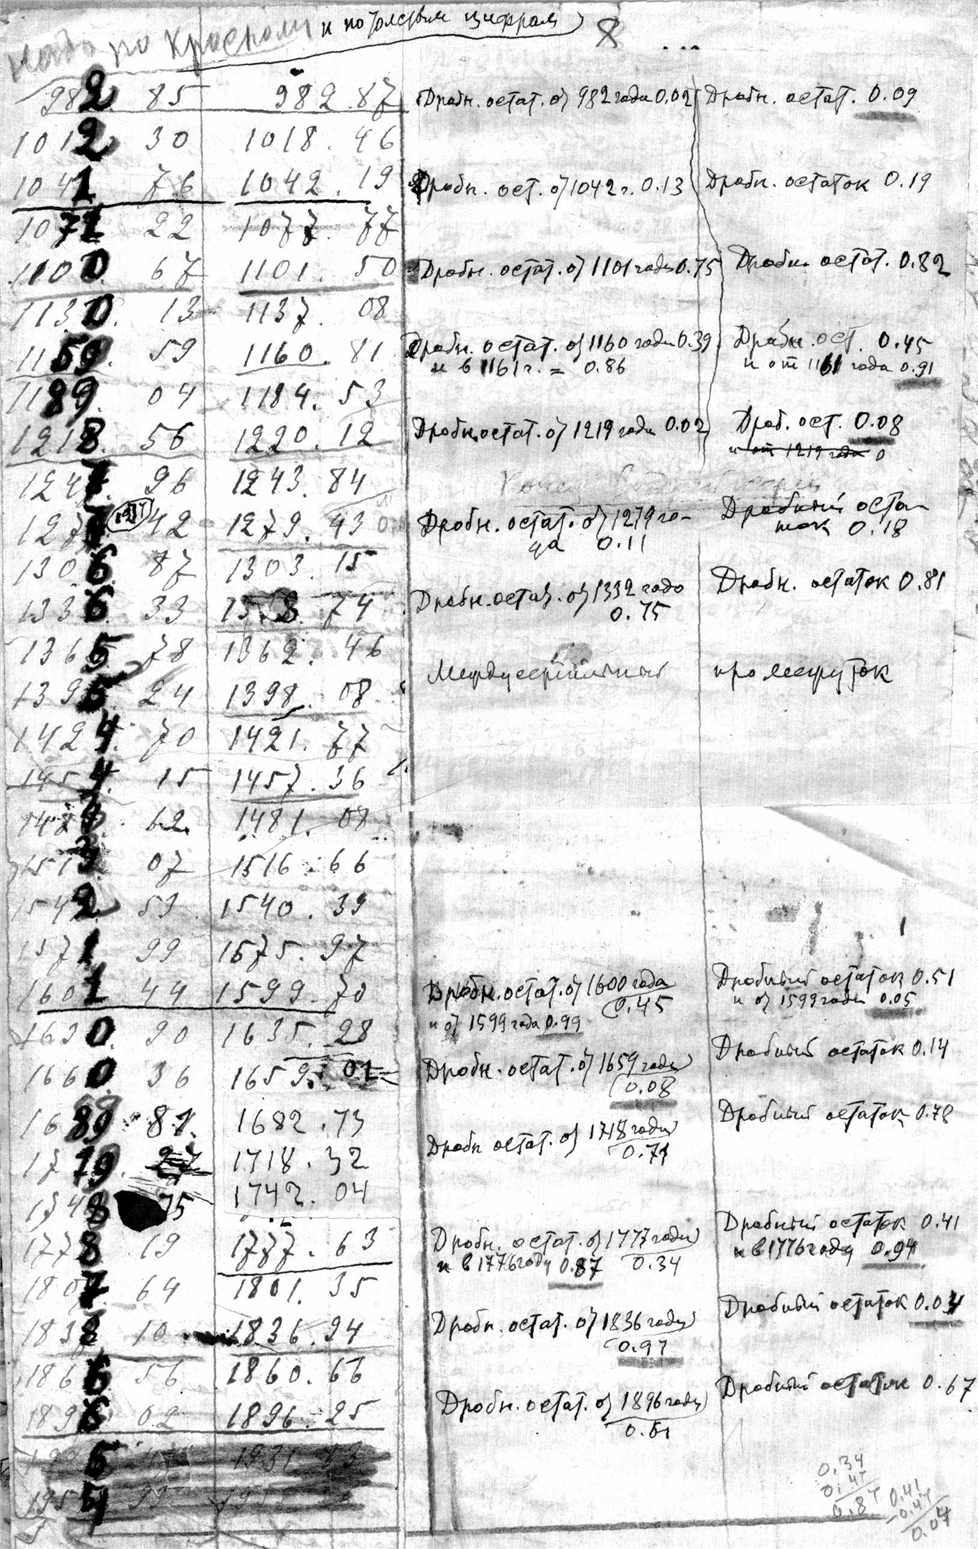 Надо по красным и по толстым цифрам 8
982 85 982.87 Дробн. остат. от 982 года 0.02 Дробн. остат. 0.09
1012 30 1018.46
1041 76 1042.19 Дробн. ост. от 1042 г. 0.13 Дробн. остаток 0.19
1071 22 1077.77
1100 67 1101.50 Дробн. остат. от 1101 года 0.75 Дробн. остат. 0.82
1130. 13 1137.08
1159. 59 1160.81 Дробн. остат. от 1160 года 0.39 Дробн. ост. 0.45
и в 1161 г. = 0.86 и от 1161 года 0.91
1189. 04 1184.53
1218. 56 1220.12 Дробн. остат. от 1219 года 0.02 Дроб. ост. 0.08
и от 1219 года 0
1247 96 1243.84
127 42 1279.43 Дробн. остат. от 1279 го- Дробный оста-
да 0.11 ток 0.18
1306. 87 1303.15
1336 33 74 Дробн. остат. от 1332 года Дробн. остаток 0.81
0.75
1365 78 1362.46
Междусерийный промежуток
1395 24 1398.08
1424. 70 1421.77
1454. 15 1457.36
148 62 1481.07
1513 07 1516.66
1542 53 1540.39
1571 99 1575.97
1601 44 1599.70 Дробн. остат. от 1600 года Дробный остаток 0.51
и от 1599 года 0.99 0.45 и от 1599 года 0.05
1630. 90 1635.28
1660 36 1659.01 Дробн. остат. от 1659 года Дробный остаток 0.14
0.08
1689 81 1682.73
1719. 27 1718.32 Дробн остат. от 1718 года Дробный остаток 0.78
0.71
1748 75 1742.04
1778 19 1777.63 Дробн. остат. от 1777 года Дробный остаток 0.41
и в 1776 году 0.87 0.34 и в 1776 году 0.94
1807 64 1801.35
183 10 1836.94 Дробн. остат. от 1836 года Дробный остаток 0.04
0.97
1866 56 1860.66
1896 02 1896.25 Дробн. остат. от 1896 года Дробный остаток 0.67
0.61
5 1931
195
0.34
0.47
0.87
0.41
0.47
0.04